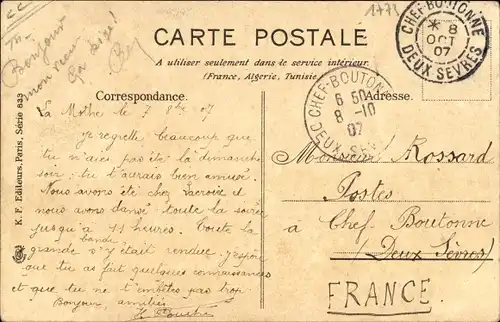 1773
CARTE POSTALE
A utiliser seulement dans le service intérieur
(France, Algerie, Tunisie
Bonjour
mon vieux
Ça bise!
CHEF-BOUTONNE
* 8
OCT
07
DEUX SEVRES
CHEF-BOUTONNE
6 50
8 -10
07
DEUX SEV
Correspondance.
Adresse.
La Mothe le 7 8bre 07
Je regrette beaucoup que
tu n'aies pas été la dimanche
soir; tu t'aurais bien amusé.
Nous avons été chez Lacroix et
nous avons dansé toute la soirée
jusqu'à 11 heures. Toute la
grande bande s'y était rendue. J'espère
que tu as fait quelques connaissances
et que tu ne t'embêtes pas trop
Bonjour, amitiés
Monsieur Rossard
Postes
à Chef Boutonne
(Deux Sèvres)
FRANCE.
K. F. Editeurs, Paris, Série 833